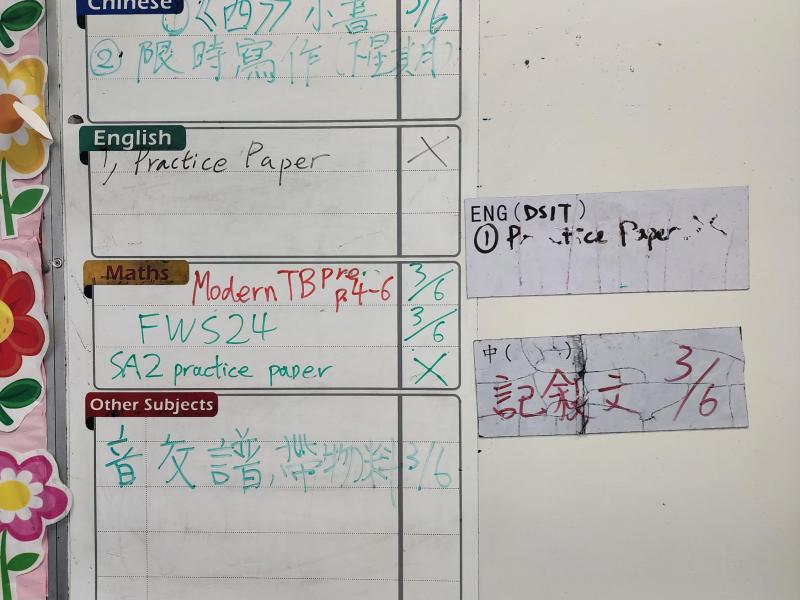 Chinese
①《西》小書 3/6
② 限時寫作(下星期)
English
1, Practice Paper X
Maths
Modern TB pre. p.4-6 3/6
FWS24 3/6
SA2 practice paper X
Other Subjects
音交譜,帶物料 3/6
ENG(DSIT)
① Practice Paper X
中( )
記敘文 3/6